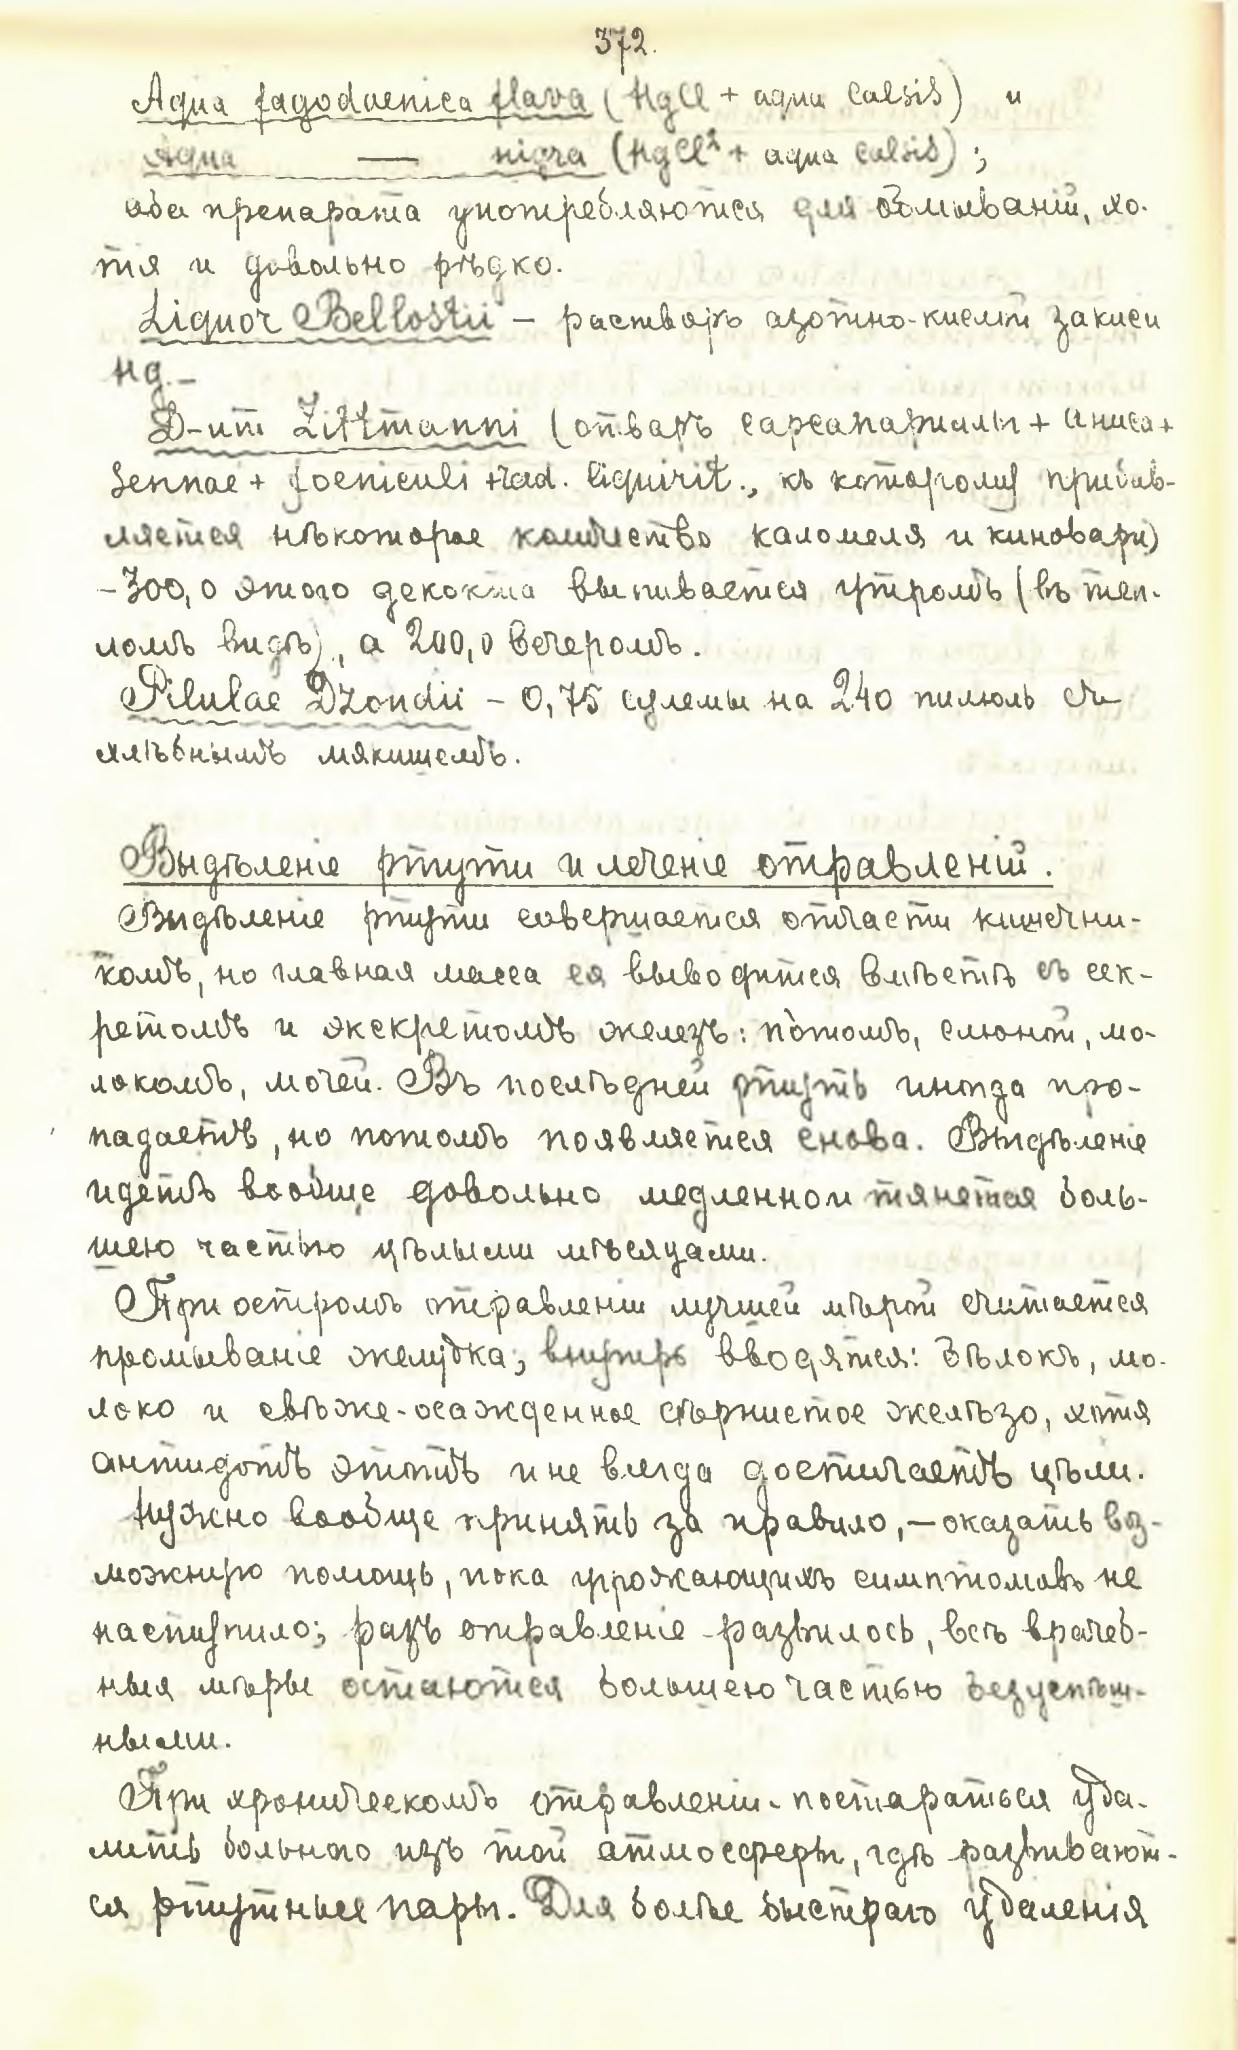 372.
Aqua fagodaenica flava (HgCl + aqua Calsis) и
Aqua — nigra (HgCl² + aqua Calsis);
оба препарата употребляются для обмываній, хо-
тя и довольно рѣдко.
Liquor Bellostii – растворъ азотно-кислой закиси
Hg.–
D-um Zittmanni (отваръ сарсапариллы + аниса +
Sennae + foeniculi + rad. liquirit., къ которому прибав-
ляется нѣкоторое количество каломеля и киновари)
– 300,0 этого декокта выпивается утромъ (въ теп-
ломъ видѣ), а 200,0 вечеромъ.
Pilulae Dzondii – 0,75 сулемы на 240 пилюль съ
хлѣбнымъ мякишемъ.
Выдѣленіе ртути и леченіе отравленій.
Выдѣленіе ртути совершается отчасти кишечни-
комъ, но главная масса ея выводится вмѣстѣ съ сек-
ретомъ и экскретомъ железъ: потомъ, слюной, мо-
локомъ, мочей. Въ послѣдней ртуть иногда про-
падаетъ, но потомъ появляется снова. Выдѣленіе
идетъ вообще довольно медленно и тянется боль-
шею частью цѣлыми мѣсяцами.
При остромъ отравленіи лучшей мѣрой считается
промываніе желудка; внутрь вводятся: бѣлокъ, мо-
локо и свѣже-осажденное сѣрнистое желѣзо, хотя
антидотъ этотъ и не всегда достигаетъ цѣли.
Нужно вообще принять за правило, – оказать воз-
можную помощь, пока угрожающихъ симптомовъ не
наступило; разъ отравленіе развилось, всѣ врачеб-
ныя мѣры остаются большею частью безуспѣш-
ными.
При хроническомъ отравленіи – постараться уда-
лить больного изъ той атмосферы, гдѣ развивают-
ся ртутные пары. Для болѣе быстраго удаленія